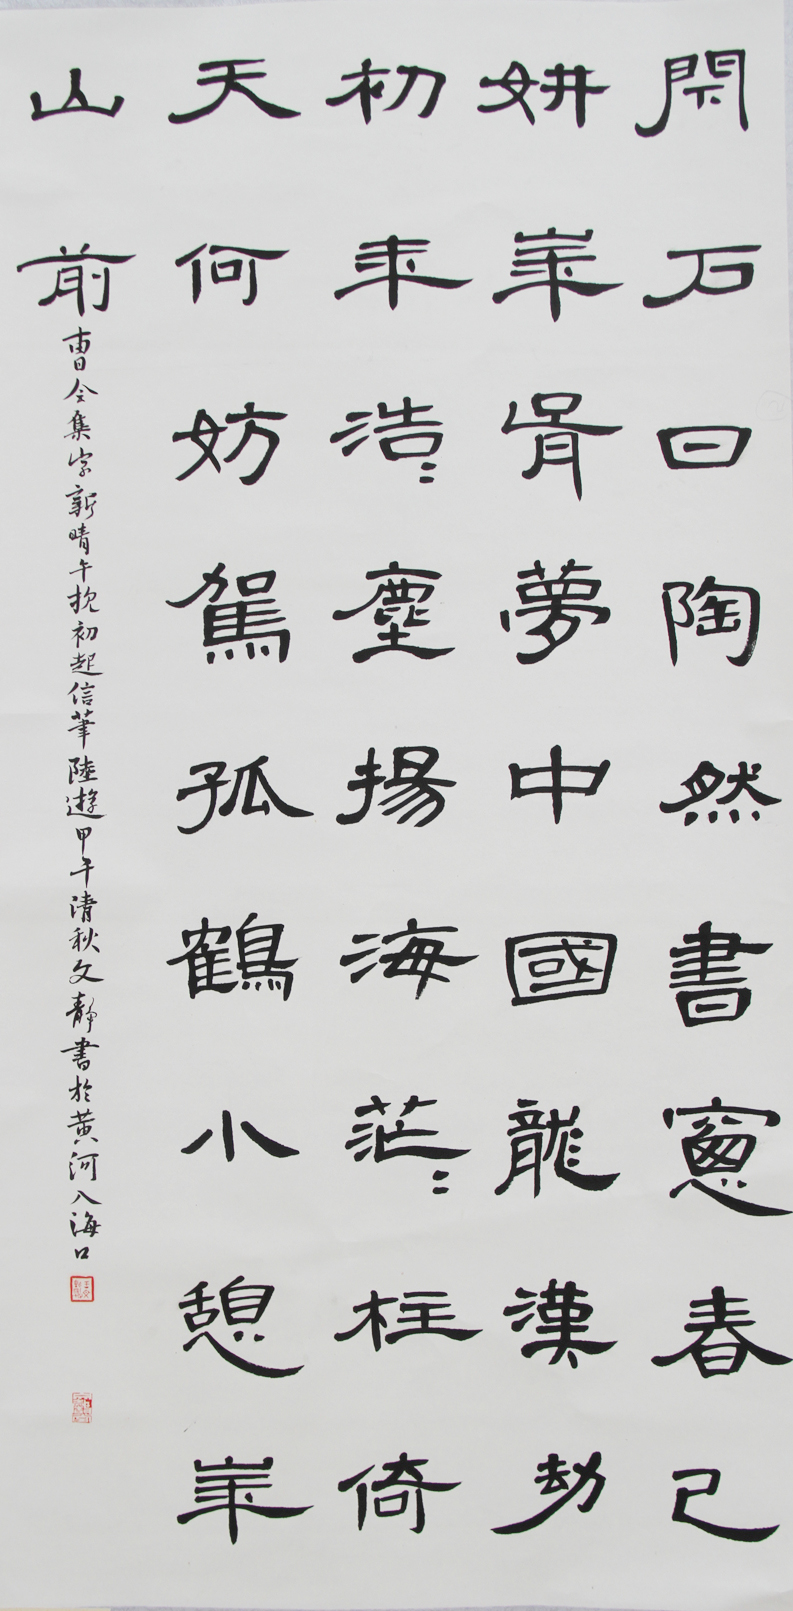 閇戶日陶然書窻春已
妍華胥夢中國龍漢劫
初年浩〻塵揚海茫〻柱倚
天何妨駕孤鶴小憩華
山前
曹全集字新晴午枕初起信筆陸遊甲午清秋文靜書於黃河入海口